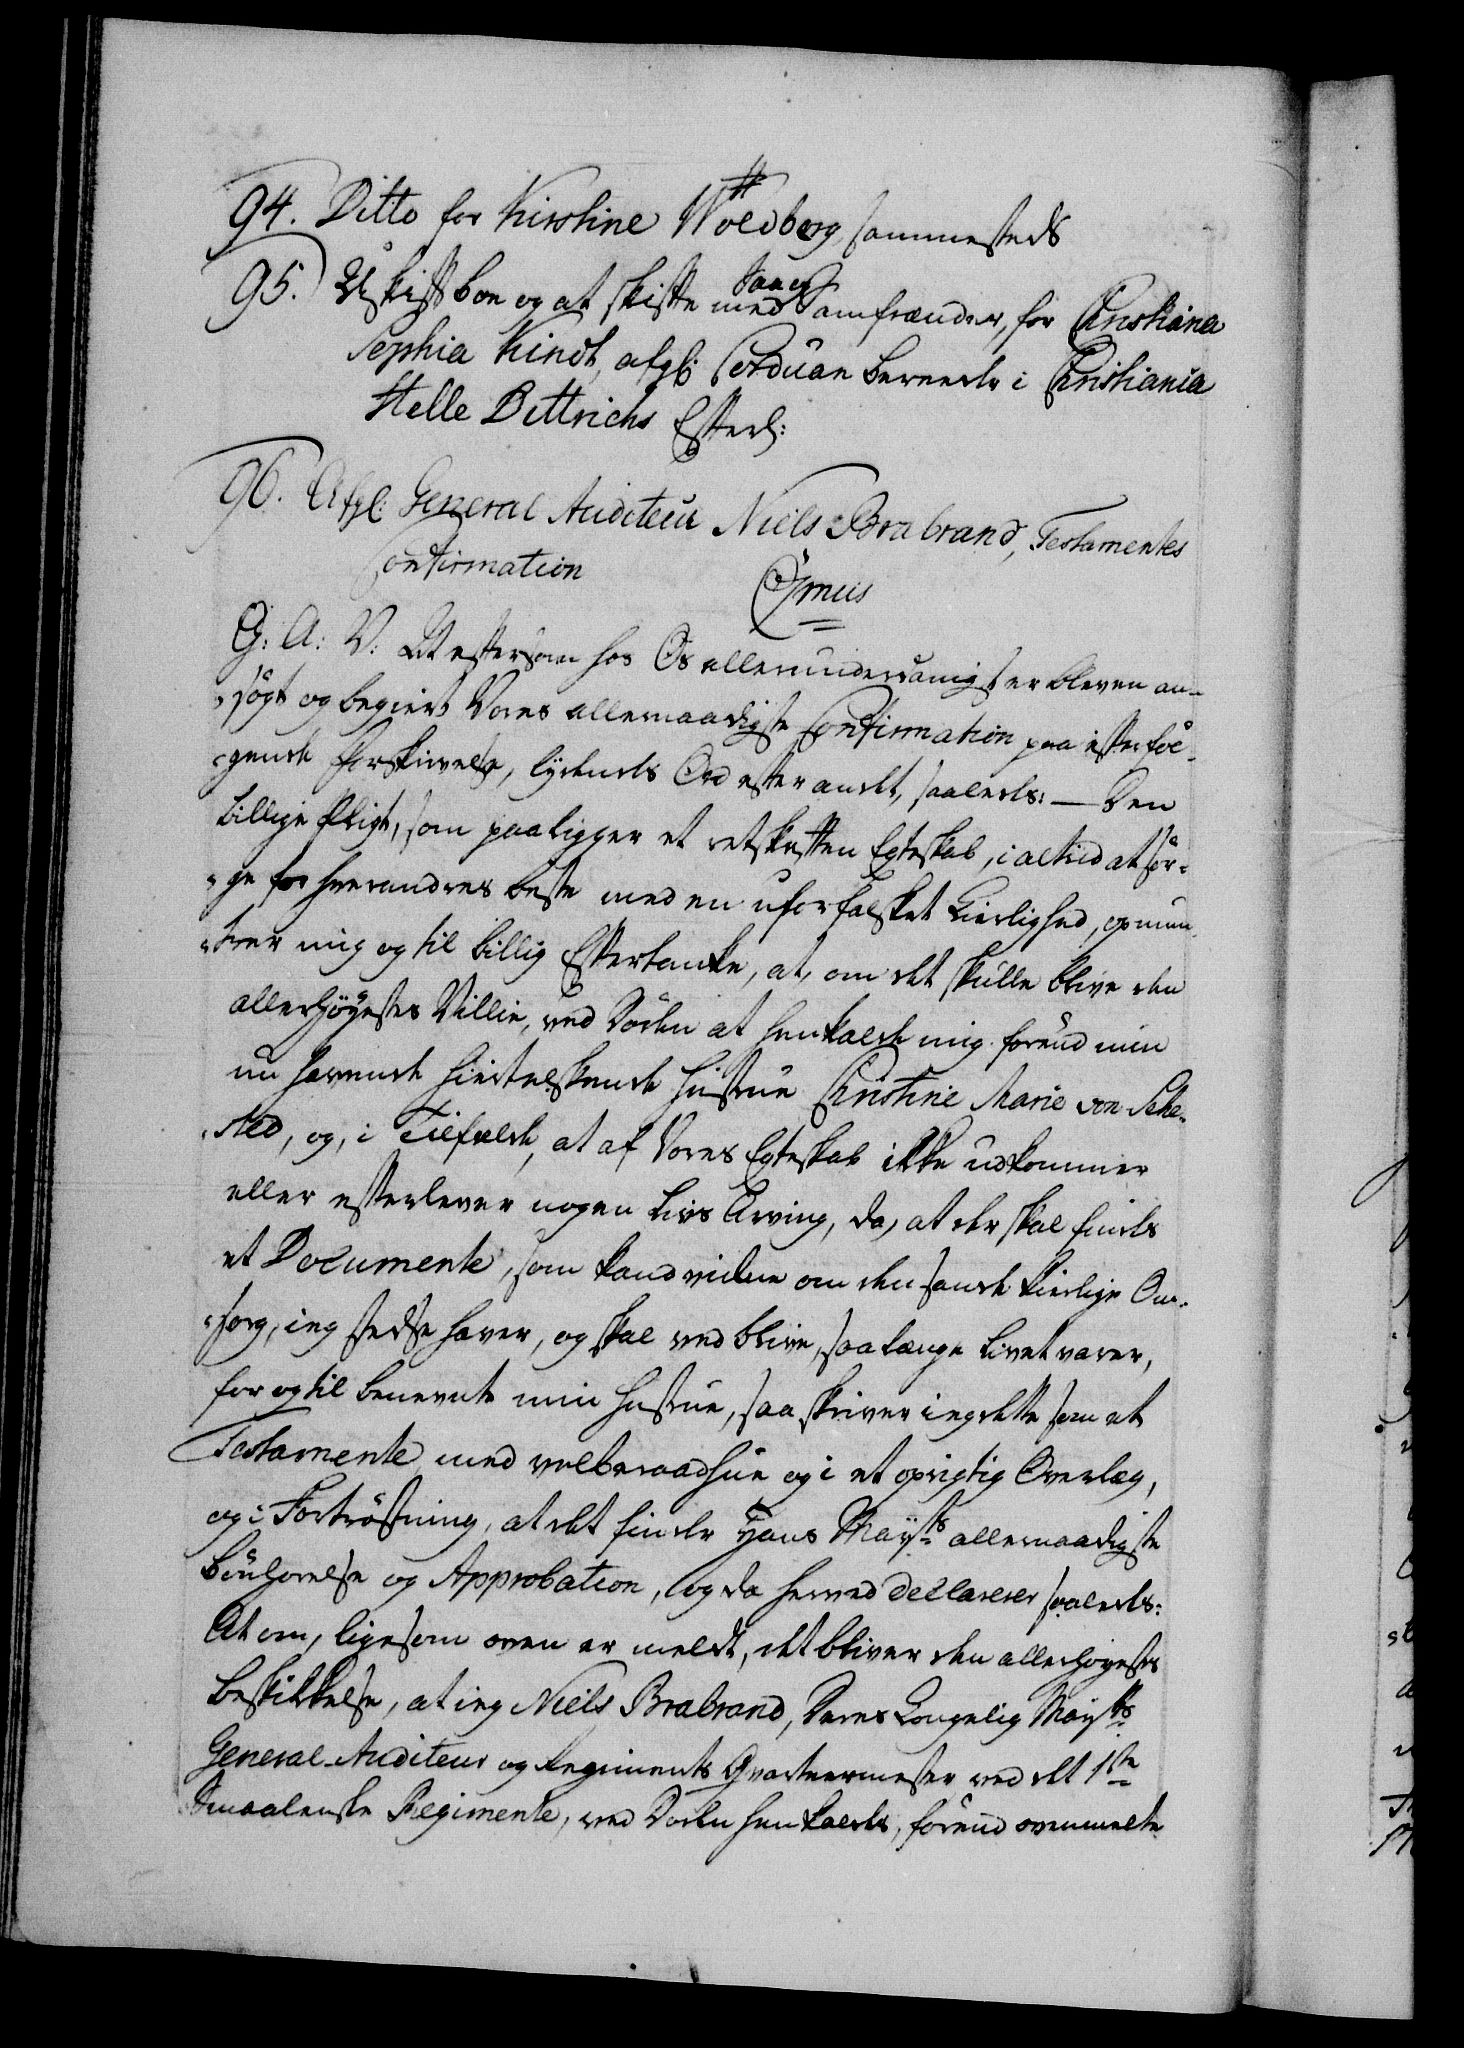 94. Ditto for Kirstine Woldberg, sammesteds
95. Uskift boe og at skifte med Samfrænder, for Christiana
Sophia Kindt, afg: Corduan bereeder i Christiania
Helle Dittrichs Efterl:
96. Afgl: General Auditeur Niels Brabrand, Testamentes
Confirmation
Gr: A: V: At eftersom hos Os allerunderdanigst er bleven an-
søgt og begiert Vores allernaadigste Confirmation paa efterføl-
gende Forskrivelse, lydende Ord efter andet, saaledes: — Den
billige Pligt, som paaligger et retskaffen Egteskab, i altid at sør-
ge for hverandres beste med en uforfalsket Kierlighed, opmun-
trer mig og til billig Eftertanke, at, om det skulle blive den
allerhøyestes Villie, ved Døden at henkalde mig forend min
nu havende hiertelskende Hustrue Christine Marie von Sche-
sted, og, i Tilfælde, at af Vores Egteskab ikke udkommer
eller efterlever nogen Livs Arving, da, at der skal findes
et Documente, som kand vidne om den sande kierlige Om-
sorg, ieg stedse haver, og skal ved blive, saalænge Livet varer,
for og til benevnte min Hustrue, saa skriver ieg dette som et
Testamente med velberaadhue og i et oprigtig Overlæg,
og i Fortrøstning, at det finder Hans Mayts allernaadigste
Bønhørelse og Approbation, og da herved declarerer saaledes:
At om, ligesom oven er meldt, det bliver den allerhøyestes
Beskikkelse, at ieg Niels Brabrand, Deres Kongelig Mayts
General-Auditeur og Regiments Qvarteermester ved det 1ste
Smaalenske Regimente, ved Døden henkaldes, førend ovenmelte